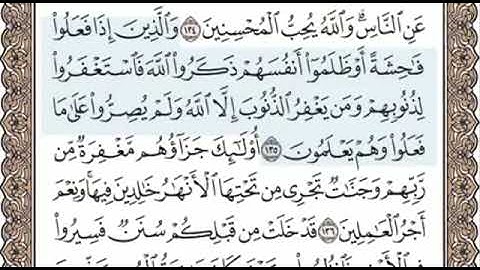 عَنِ ٱلنَّاسِۗ وَٱللَّهُ يُحِبُّ ٱلْمُحْسِنِينَ ١٣٤ وَٱلَّذِينَ إِذَا فَعَلُوا۟
فَٰحِشَةً أَوْ ظَلَمُوٓا۟ أَنفُسَهُمْ ذَكَرُوا۟ ٱللَّهَ فَٱسْتَغْفَرُوا۟
لِذُنُوبِهِمْ وَمَن يَغْفِرُ ٱلذُّنُوبَ إِلَّا ٱللَّهُ وَلَمْ يُصِرُّوا۟ عَلَىٰ مَا
فَعَلُوا۟ وَهُمْ يَعْلَمُونَ ١٣٥ أُو۟لَٰٓئِكَ جَزَآؤُهُم مَّغْفِرَةٌ مِّن
رَّبِّهِمْ وَجَنَّٰتٌ تَجْرِى مِن تَحْتِهَا ٱلْأَنْهَٰرُ خَٰلِدِينَ فِيهَاۚ وَنِعْمَ
أَجْرُ ٱلْعَٰمِلِينَ ١٣٦ قَدْ خَلَتْ مِن قَبْلِكُمْ سُنَنٌ فَسِيرُوا۟